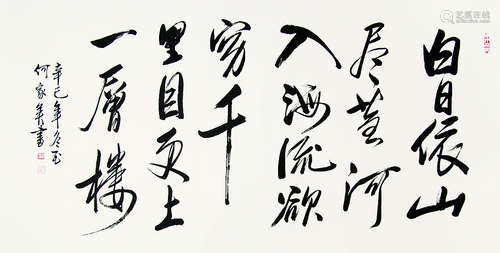 白日依山
尽黄河
入海流欲
穷千
里目更上
一層樓
辛巳年冬至
何家英書
艺狐在线